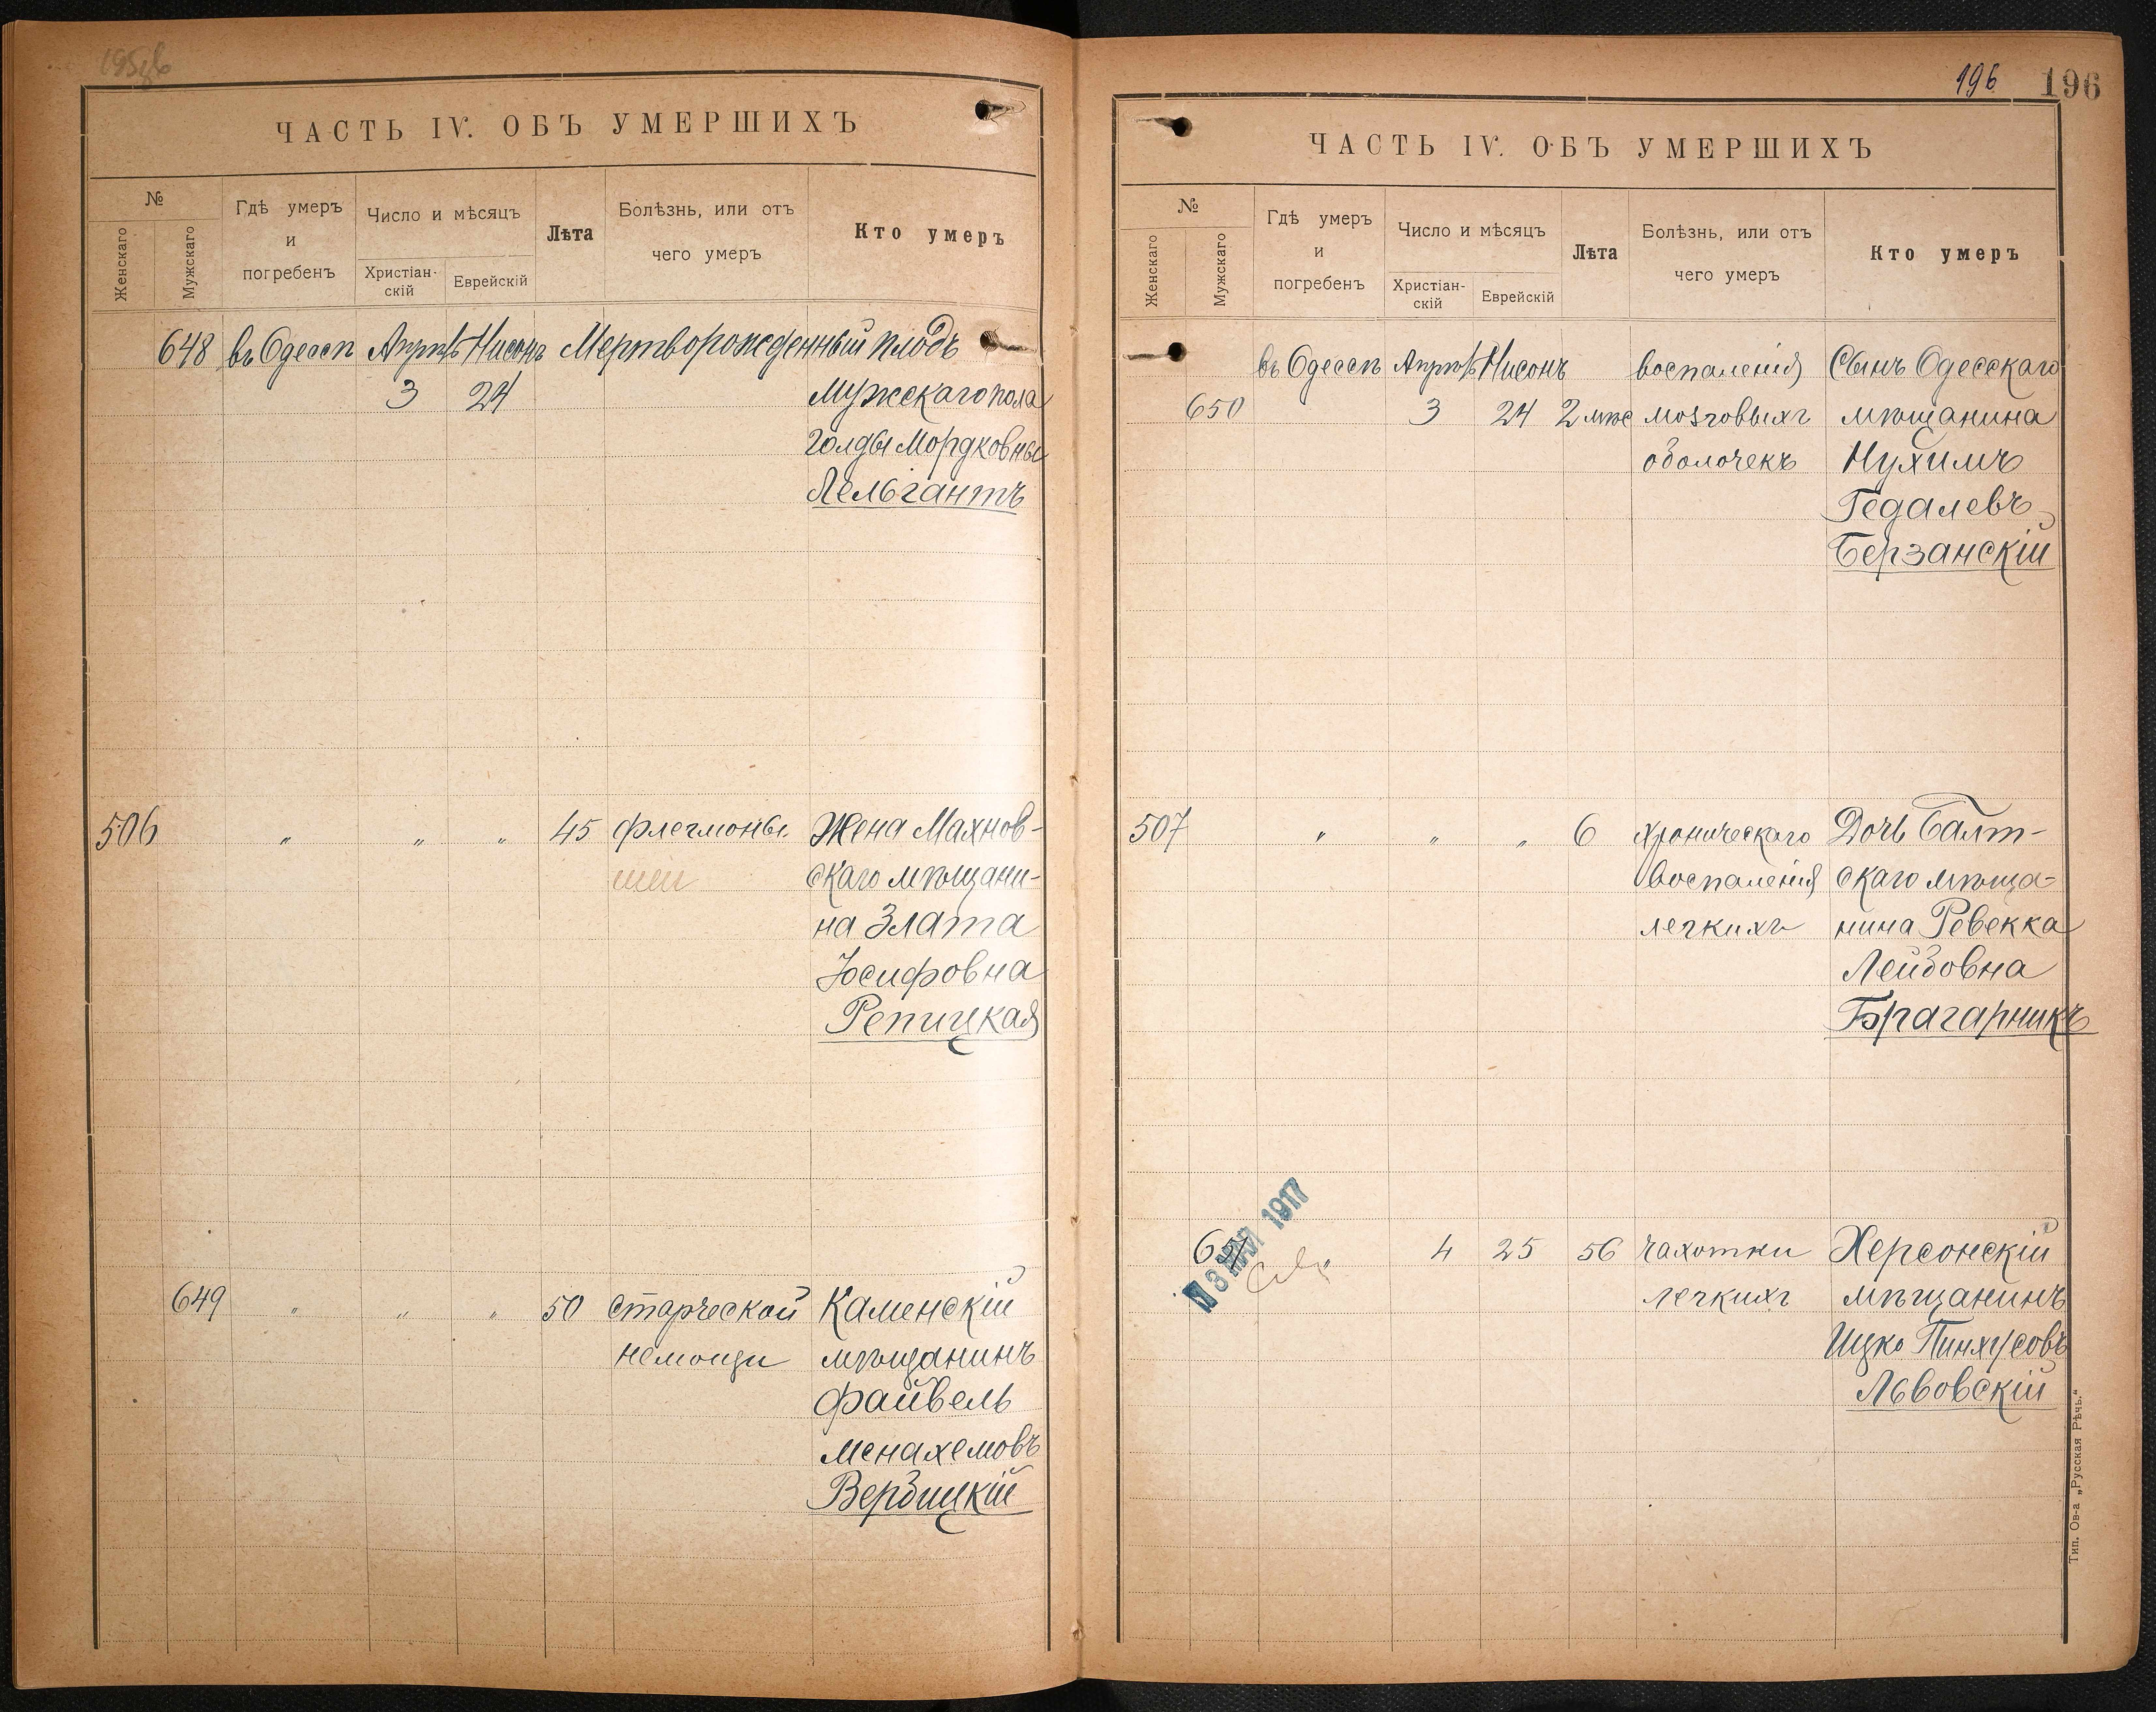 ЧАСТЬ IV. ОБЪ УМЕРШИХЪ
№
Женскаго
Мужскаго
Гдѣ умеръ
и
погребенъ
Число и мѣсяцъ
Христіан-
скій
Еврейскій
Лѣта
Болѣзнь, или отъ
чего умеръ
Кто умеръ
648 въ Одессѣ Апрѣль Нисонъ Мертворожденный плодъ
3 24 Мужскаго пола
Голды Мордковны
Лельгантъ
506 " " " 45 флегмоны Жена Махнов-
шеи скаго мѣщани-
на Злата
Іосифовна
Репицкая
649 " " " 50 старческой Каменскій
немощи мѣщанинъ
Файвель
Менахемовъ
Вербицкій
196 196
ЧАСТЬ IV. ОБЪ УМЕРШИХЪ
№
Женскаго
Мужскаго
Гдѣ умеръ
и
погребенъ
Число и мѣсяцъ
Христіан-
скій
Еврейскій
Лѣта
Болѣзнь, или отъ
чего умеръ
Кто умеръ
въ Одессѣ Апрѣль Нисонъ воспаленія Сынъ Одесскаго
650 3 24 2 мѣс мозговыхъ мѣщанина
оболочекъ Нухимъ
Гедалевъ
Берзанскій
507 " " " 6 хроническаго Дочь Балт-
воспаленія скаго мѣща-
легкихъ нина Ревекка
Лейбовна
Брагарникъ
651 4 25 56 чахотки Херсонскій
легкихъ мѣщанинъ
Ицко Пинхусовъ
Львовскій
1917
Тип. Ов-а „Русская Рѣчь."